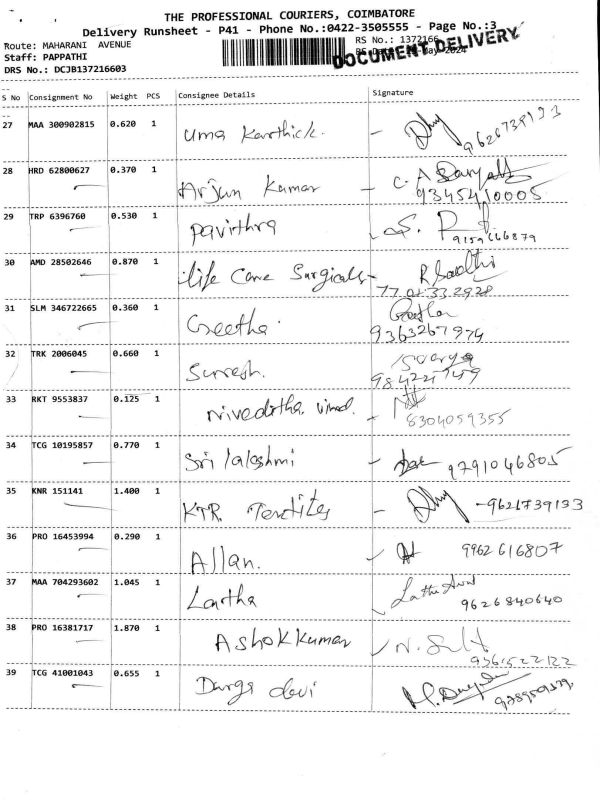 THE PROFESSIONAL COURIERS, COIMBATORE
Delivery Runsheet - P41 - Phone No.:0422-3505555 - Page No.:3
Route: MAHARANI AVENUE
Staff: PAPPATHI
DRS No.: DCJB137216603
RS No.: 1372166
DOCUMENT DELIVERY
S No Consignment No Weight PCS Consignee Details Signature
27 MAA 300902815 0.620 1 Uma Karthick - 9626739133
28 HRD 62800627 0.370 1 Arjun Kumar - C. A 9345410005
29 TRP 6396760 0.530 1 Pavithra S. 9159666879
30 AMD 28502646 0.870 1 life Care Surgicals - R
31 SLM 346722665 0.360 1 Geetha. Geetha 9363267974
32 TRK 2006045 0.660 1 Suresh.
33 RKT 9553837 0.125 1 Niveditha Vimal. - 8304059355
34 TCG 10195857 0.770 1 Sri lakshmi - 9791046805
35 KNR 151141 1.400 1 KTR Textiles - -9621739133
36 PRO 16453994 0.290 1 Allan. 9962616807
37 MAA 704293602 1.045 1 Lartha 9626840640
38 PRO 16381717 1.870 1 Ashok kumar N. 9361522122
39 TCG 41001043 0.655 1 Durga devi